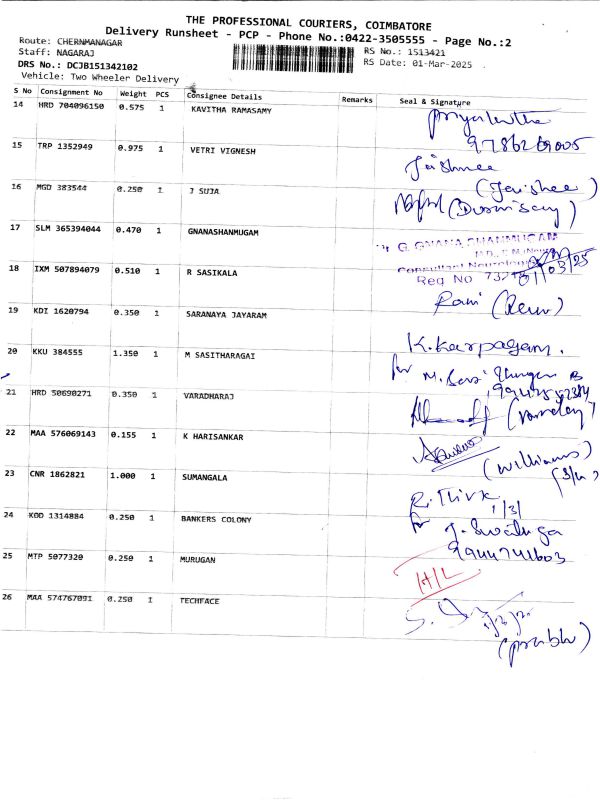 THE PROFESSIONAL COURIERS, COIMBATORE
Delivery Runsheet - PCP - Phone No.:0422-3505555 - Page No.:2
Route: CHERNMANAGAR
RS No.: 1513421
Staff: NAGARAJ
RS Date: 01-Mar-2025
DRS No.: DCJB151342102
Vehicle: Two Wheeler Delivery
S No Consignment No Weight PCS Consignee Details Remarks Seal & Signature
14 HRD 704096150 0.575 1 KAVITHA RAMASAMY
9786269005
15 TRP 1352949 0.975 1 VETRI VIGNESH
16 MGD 383544 0.250 1 J SUJA
17 SLM 365394044 0.470 1 GNANASHANMUGAM
Dr G. GNANA SHANMUGAM
Consultant Neurologist
Reg No
01/03/25
18 IXM 507894079 0.510 1 R SASIKALA
19 KDI 1620794 0.350 1 SARANAYA JAYARAM
K.Karpagam.
20 KKU 384555 1.350 1 M SASITHARAGAI
for M. Sasi
21 HRD 50690271 0.350 1 VARADHARAJ
22 MAA 576069143 0.155 1 K HARISANKAR
(Williams)
23 CNR 1862821 1.000 1 SUMANGALA
24 KOD 1314884 0.250 1 BANKERS COLONY
9944741603
25 MTP 5077320 0.250 1 MURUGAN
H/L
26 MAA 574767091 0.250 1 TECHFACE
(prabhu)